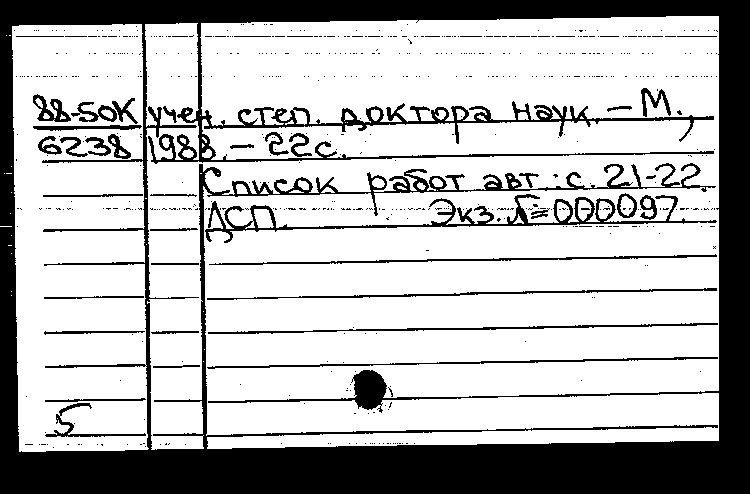 88-50К учен. степ. доктора наук. – М.,
6238 1988. – 22 с.
Список работ авт.: с. 21-22.
ДСП. Экз. № 000097.
5